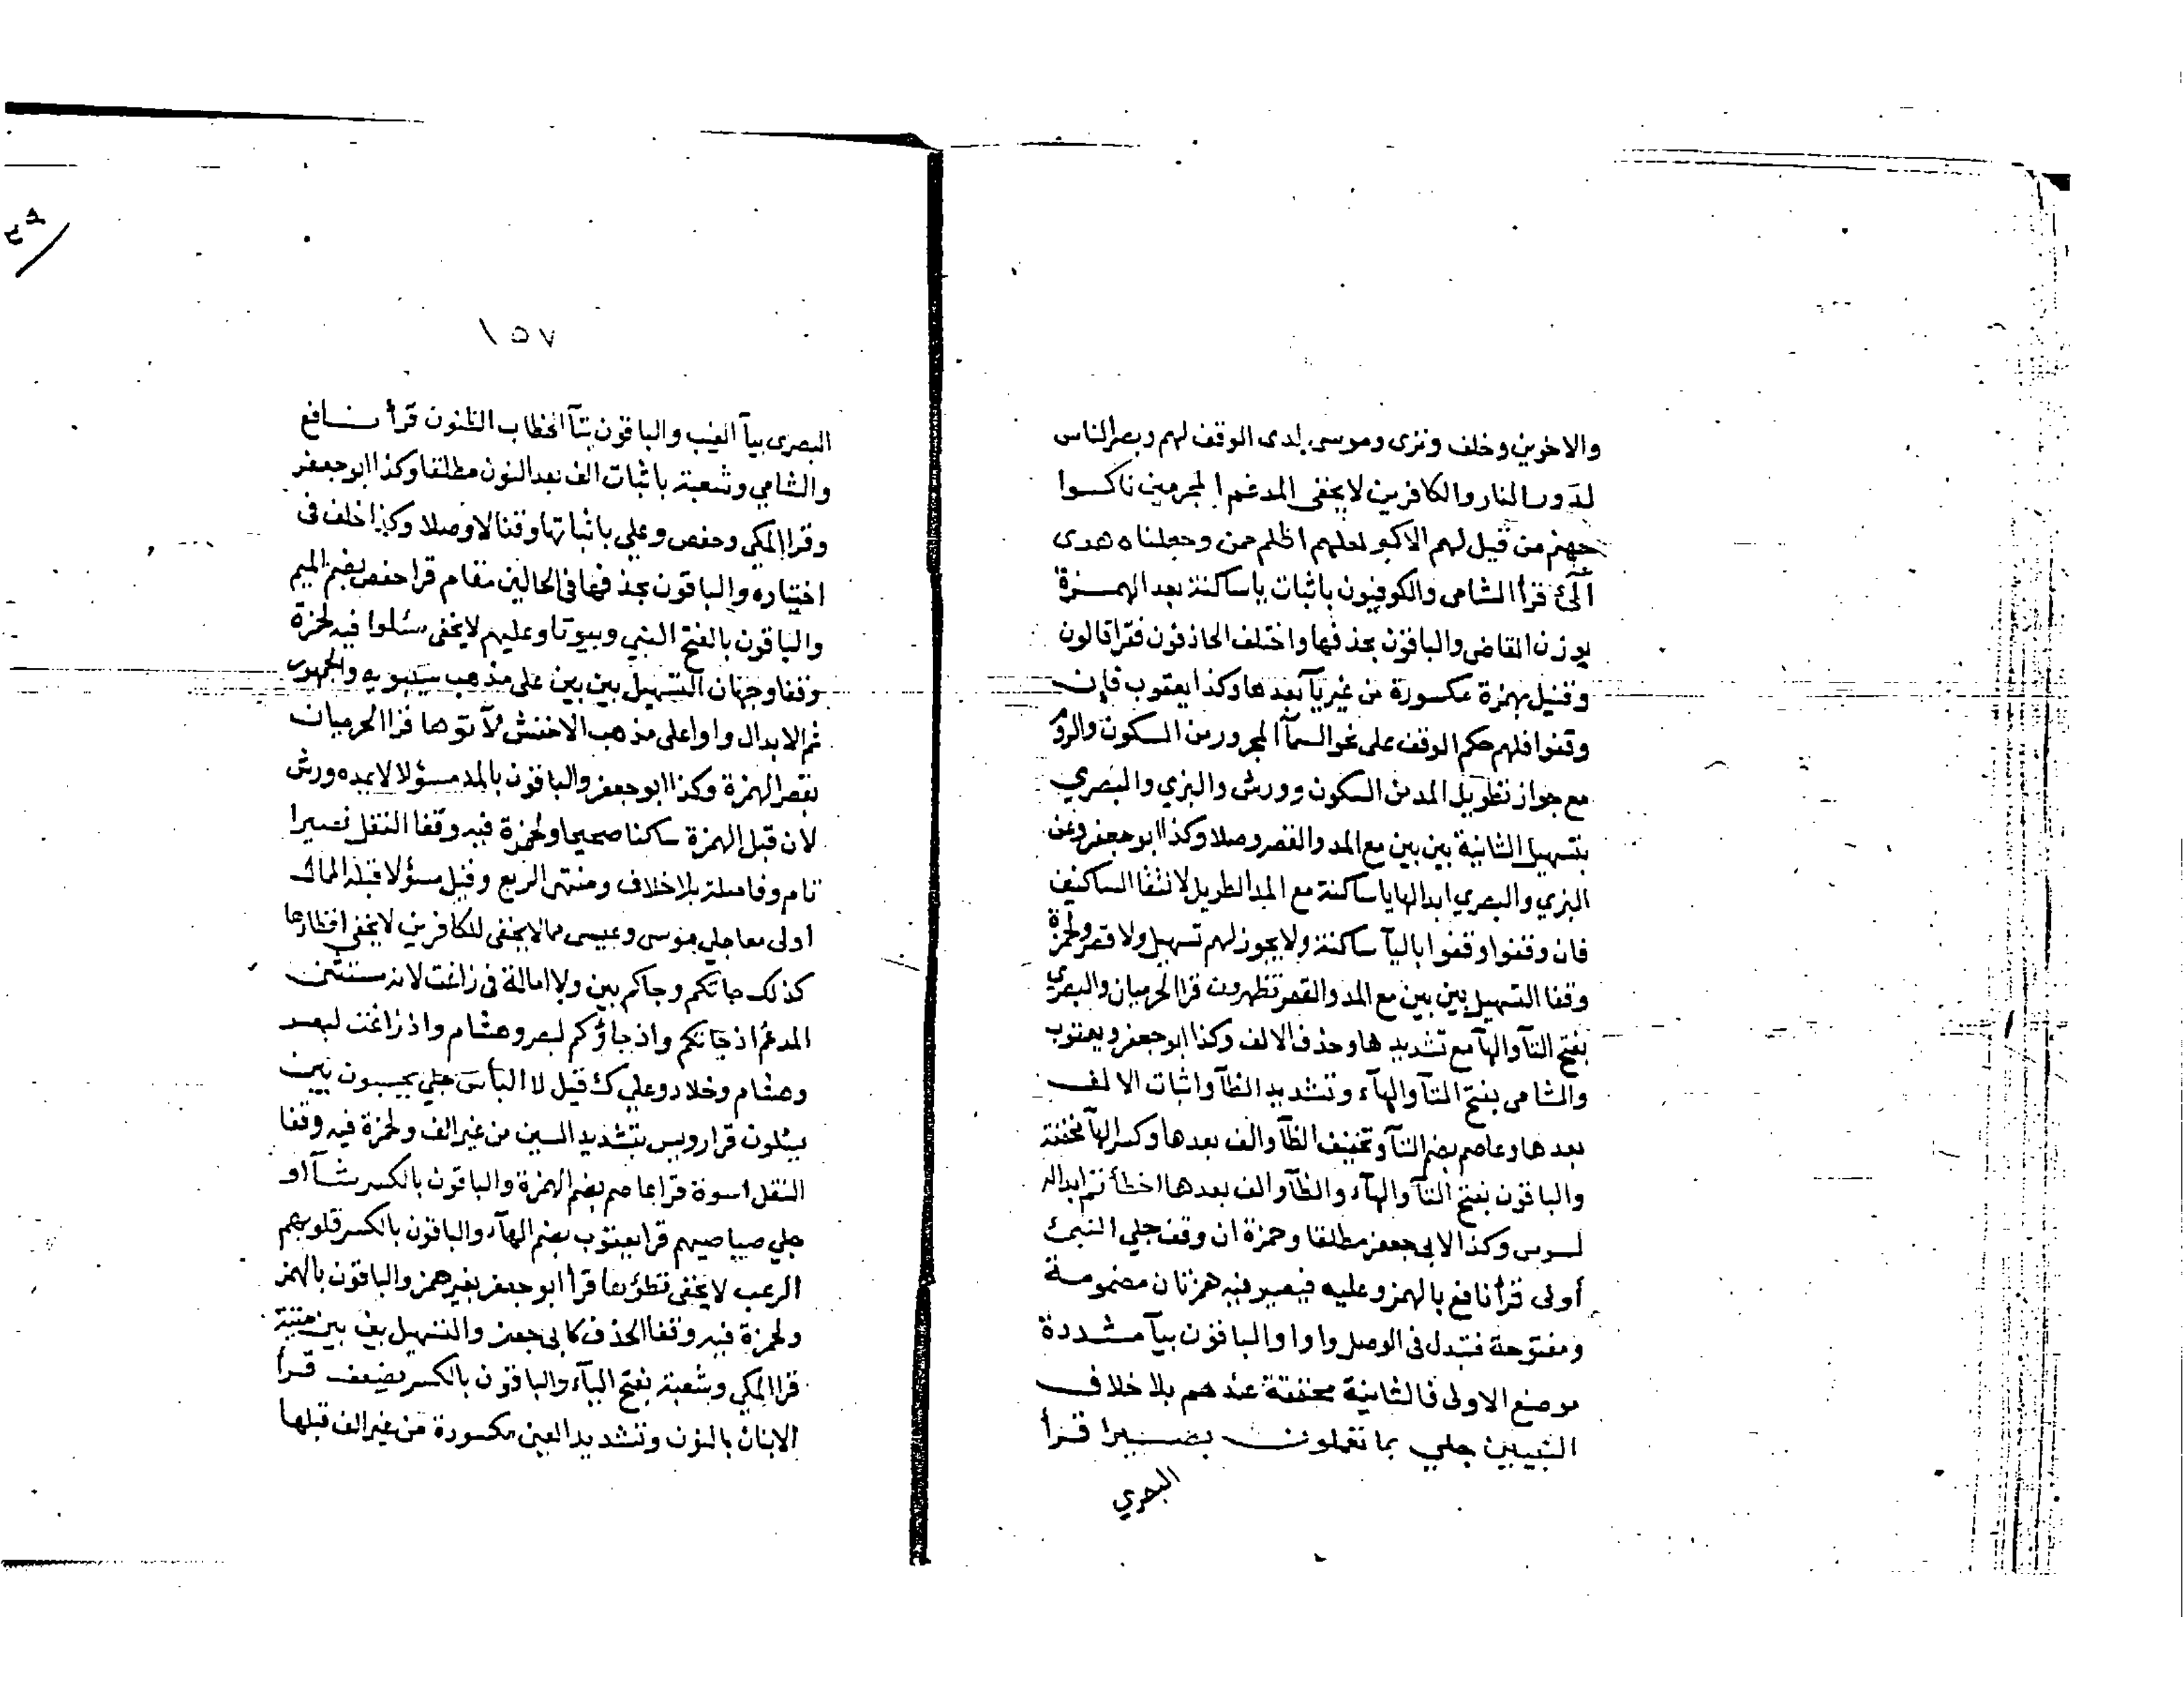 والاخوين وخلف وترى وموسى لدى الوقف لهم وبصر الناس
لدور النار والكافرين لا يخفى المدغم المجرمين ناكسوا
جهنم من قيل لهم الاكبر لعلهم اظلم ممن وجعلناه هدى
آلئ قرأ الشامى والكوفيون باثبات يا ساكنة بعد الهمزة
بوزن القاضى والباقون بحذفها واختلف الحاذفون فقرا قالون
وقنبل بهمزة مكسورة من غير يآ بعدها وكذا يعقوب فإن
وقفوا فلهم حكم الوقف على نحو السمآ المجرور من السكون والرو
مع جواز تطويل المد من السكون وورش والبزي والبصري
بتسهيل الثانية بين بين مع المد والقصر وصلا وكذا ابو جعفر وعن
البزي والبصري ابدالها يا ساكنة مع المد الطويل لالتقا الساكنين
فان وقفوا وقفوا باليآ ساكنة ولا يجوز لهم تسهيل ولا قصر ولحمزة
وقفا التسهيل بين بين مع المد والقصر تظهرون قرا الحرميان والبصري
بفتح التآ والهآ مع تشديدها وحذف الالف وكذا ابو جعفر ويعقوب
والشامى بفتح التآ والهآء وتشديد الظآ واثبات الالف
بعدها وعاصم بضم التآ وتخفيف الظآ والف بعدها وكسر الهآ مخففة
والباقون بفتح التآ والهآء والظآ والف بعدها اخطأتم ابداله
لسوس وكذا لابى جعفر مطلقا وحمزة ان وقف جلي النبئ
أولى قرأ نافع بالهمز وعليه فيصير فيه همزتان مضمومة
ومفتوحة فتبدل فى الوصل واوا والباقون بيآ مشددة
موضع الاولى فالثانية محققة عندهم بلا خلاف
النبيين جلي بما تعملون بصيرا قرأ
البصري
١٥٧
البصرى بيآ الغيب والباقون بتآ الخطاب الظنون قرأ نافع
والشامي وشعبة باثبات الف بعد النون مطلقا وكذا ابو جعفر
وقرا المكي وحفص وعلي باثباتها وقفا لا وصلا وكذا خلف فى
اختياره والباقون بحذفها فى الحالين مقام قرا حفص بضم الميم
والباقون بالفتح النبي وبيوتا وعليهم لا يخفى سئلوا فيه لحمزة
وقفا وجهان التسهيل بين بين على مذهب سيبويه والجمهور
ثم الابدال واوا على مذهب الاخفش لآتوها قرا الحرميان
بقصر الهمزة وكذا ابو جعفر والباقون بالمد مسؤلا لا يمده ورش
لان قبل الهمزة ساكنا صحيحا ولحمزة فيه وقفا النقل نصيرا
تام وفاصلة بلا خلاف ومنتهى الربع وقيل مسؤلا قبله الممال
أولى معا جلي موسى وعيسى مما لا يخفى للكافرين لا يخفى اقطارها
كذلك جاتكم وجاكم بين ولا امالة فى زاغت لانه مستثنى
المدغم اذ جاتكم واذ جاؤكم لبصر وهشام واذ زاغت لبصر
وهشام وخلاد وعلي ك قيل لا البأس جلي يحسبون بين
يسئلون قرا رويس بتشديد السين من غير الف ولحمزة فيه وقفا
النقل اسوة قرا عاصم بضم الهمزة والباقون بالكسر شآ او
جلي صياصيهم قرا يعقوب بضم الهآء والباقون بالكسر قلوبهم
الرعب لا يخفى تطؤها قرأ ابو جعفر بغير همز والباقون بالهمز
ولحمزة فيه وقفا الحذف كابى جعفر والتسهيل بين بين مبينة
قرا المكي وشعبة بفتح اليآء والباقون بالكسر يضعف قرأ
الابنان بالنون وتشديد العين مكسورة من غير الف قبلها